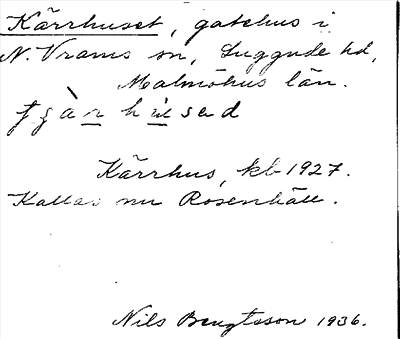 Kärrhuset, gatehus i
N. Vrams sn, Luggude hd,
Malmöhus län.
Kärrhus, kb 1927.
Kallas nu Rosenhäll.
Nils Bengtsson 1936.